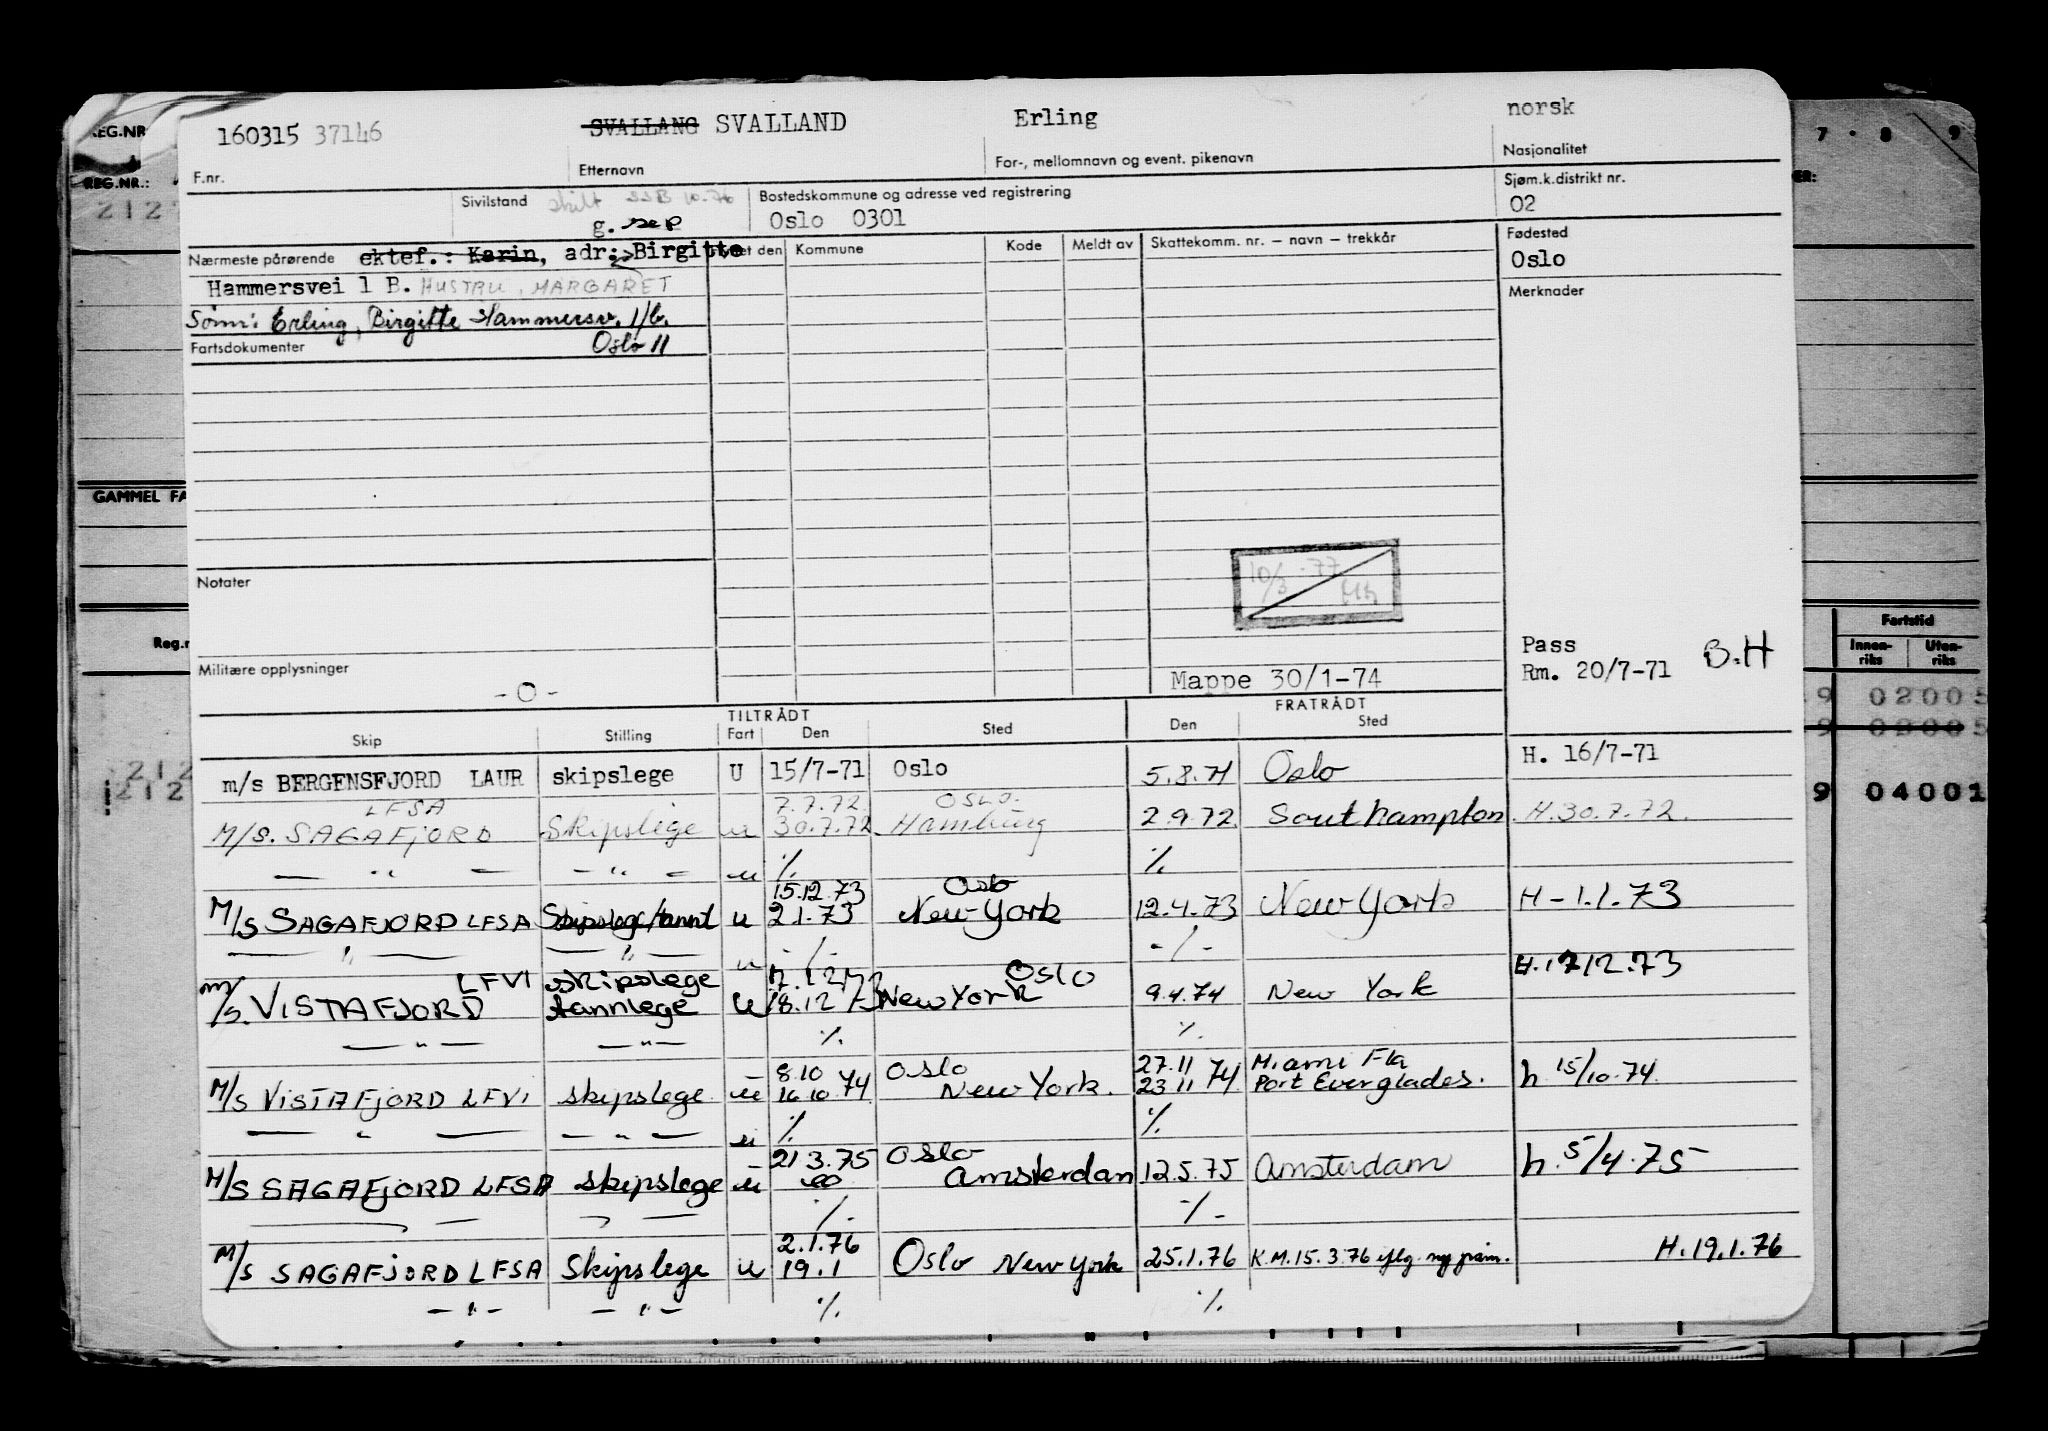 160315 37146 SVALLANG SVALLAND Erling norsk
F.nr. Etternavn For-, mellomnavn og event. pikenavn Nasjonalitet
Sivilstand skilt SSB 10.76 Bostedskommune og adresse ved registrering Sjøm.k.distrikt nr.
g. sep Oslo 0301 02
Nærmeste pårørende ektef.: Karin, adr: Birgitte Kommune Kode Meldt av Skattekomm. nr. – navn – trekkår Fødested
Oslo
Hammersvei 1 B. HUSTRU, MARGARET Merknader
Sønn: Erling, Birgitte Hammersv. 1/b.
Fartsdokumenter Oslo 11
10/3 -77
Notater
Militære opplysninger
- O -
Mappe 30/1-74
Pass
Rm. 20/7-71 B.H
TILTRÅDT FRATRÅDT
Skip Stilling Fart Den Sted Den Sted
m/s BERGENSFJORD LAUR skipslege U 15/7-71 Oslo 5.8.71 Oslo H. 16/7-71
LFSA 7.7.72 OSLO.
M/S. SAGAFJORD Skipslege u 30.7.72 Hamburg 2.9.72 Southampton H.30.7.72.
— " — — " — u % %
15.12.73 Oslo
M/S SAGAFJORD LFSA Skipslege/tannl u 2.1.73 New York 12.4.73 New York H - 1.1.73
— " — — " — u -/- -/-
LFVI skipslege 17.12.73 Oslo H.1712.73
M/S. VISTAFJORD tannlege u 18.12 73 New York 9.4.74 New York
— " — — " — % %
8.10 Oslo 27.11 Miami Fla
M/S VISTAFJORD LFVI skipslege u 16.10 74 New York. 23.11 74 Port Everglades. h 15/10.74
— " — — " — u % %
21 3.75 Oslo
M/S SAGAFJORD LFSA skipslege u Amsterdam 12.5.75 Amsterdam h. 5/4.75
% %
2.1.76
M/S SAGAFJORD LFSA Skipslege u 19.1 Oslo New York 25.1.76 K.M.15.3.76 H.19.1.76
— " — — " — % %
REG.NR
REG.NR.:
GAMMEL FA
Reg.n
7 · 8 9
ER:
Fartstid
Innen-riks Uten-riks
9 02005
9 02005
9 04001